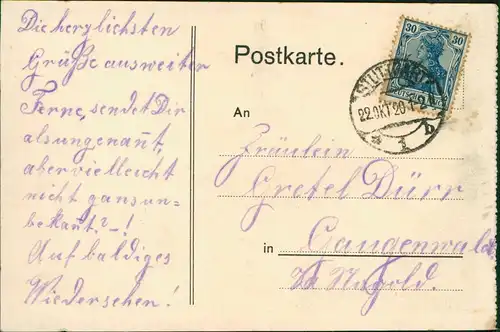 Die herzlichsten
Grüße aus weiter
Ferne, sendet Dir
als ungenañt,
aber vielleicht
nicht gans un=
bekañt.? –!
Auf baldiges
Wiedersehen!
Postkarte.
An
Fräulein
Gretel Dürr
in Gaugenwald
Nagold.
30 30
STUTTGART
22.OKT 20